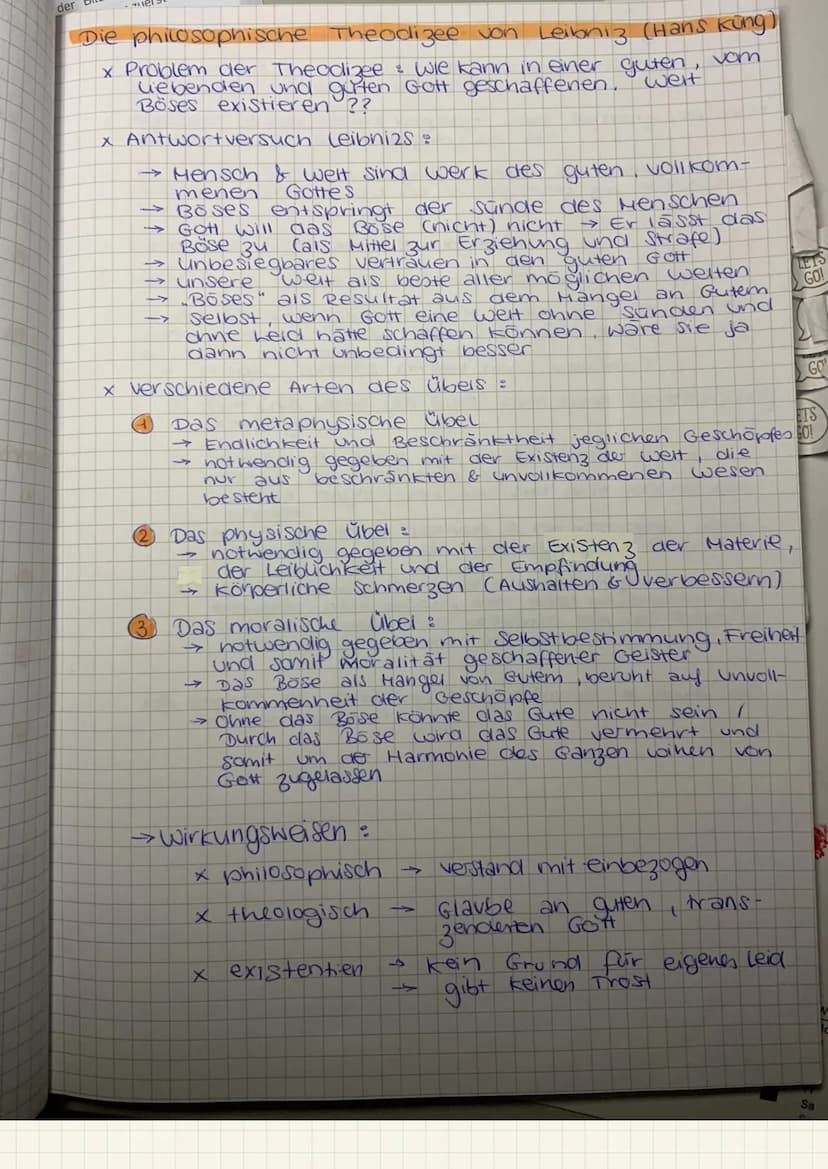 Die philosophische Theodizee von Leibniz (Hans Küng)
x Problem der Theodizee : Wie kann in einer guten, vom
liebenden und guten Gott geschaffenen. Welt
Böses existieren ??
x Antwortversuch Leibnizs :
→ Mensch & Welt sind Werk des guten, vollkom-
menen Gottes
→ Böses entspringt der Sünde des Menschen
→ Gott will das Böse (nicht) nicht → Er lässt das
Böse zu (als Mittel zur Erziehung und Strafe)
→ Unbesiegbares Vertrauen in den guten Gott
→ unsere Welt als beste aller möglichen Welten
→ „Böses" als Resultat aus dem Mangel an Gutem
→ Selbst, wenn Gott eine Welt ohne Sünden und
ohne Leid hätte schaffen können, wäre sie ja
dann nicht unbedingt besser
x verschiedene Arten des Übels :
1 Das metaphysische Übel
→ Endlichkeit und Beschränktheit jeglichen Geschöpfes
→ notwendig gegeben mit der Existenz der Welt, die
nur aus beschränkten & unvollkommenen Wesen
besteht
2 Das physische Übel :
→ notwendig gegeben mit der Existenz der Materie,
der Leiblichkeit und der Empfindung
→ Körperliche Schmerzen (Aushalten & verbessern)
3 Das moralische Übel :
→ notwendig gegeben mit Selbstbestimmung, Freiheit
und somit Moralität geschaffener Geister
→ Das Böse als Mangel von Gutem, beruht auf Unvoll-
kommenheit der Geschöpfe
→ Ohne das Böse könnte das Gute nicht sein /
Durch das Böse wird das Gute vermehrt und
somit um der Harmonie des Ganzen willen von
Gott zugelassen
→ Wirkungsweisen :
x philosophisch → Verstand mit einbezogen
x theologisch → Glaube an guten, trans-
zendenten Gott
x existentiell → kein Grund für eigenes Leid
→ gibt keinen Trost